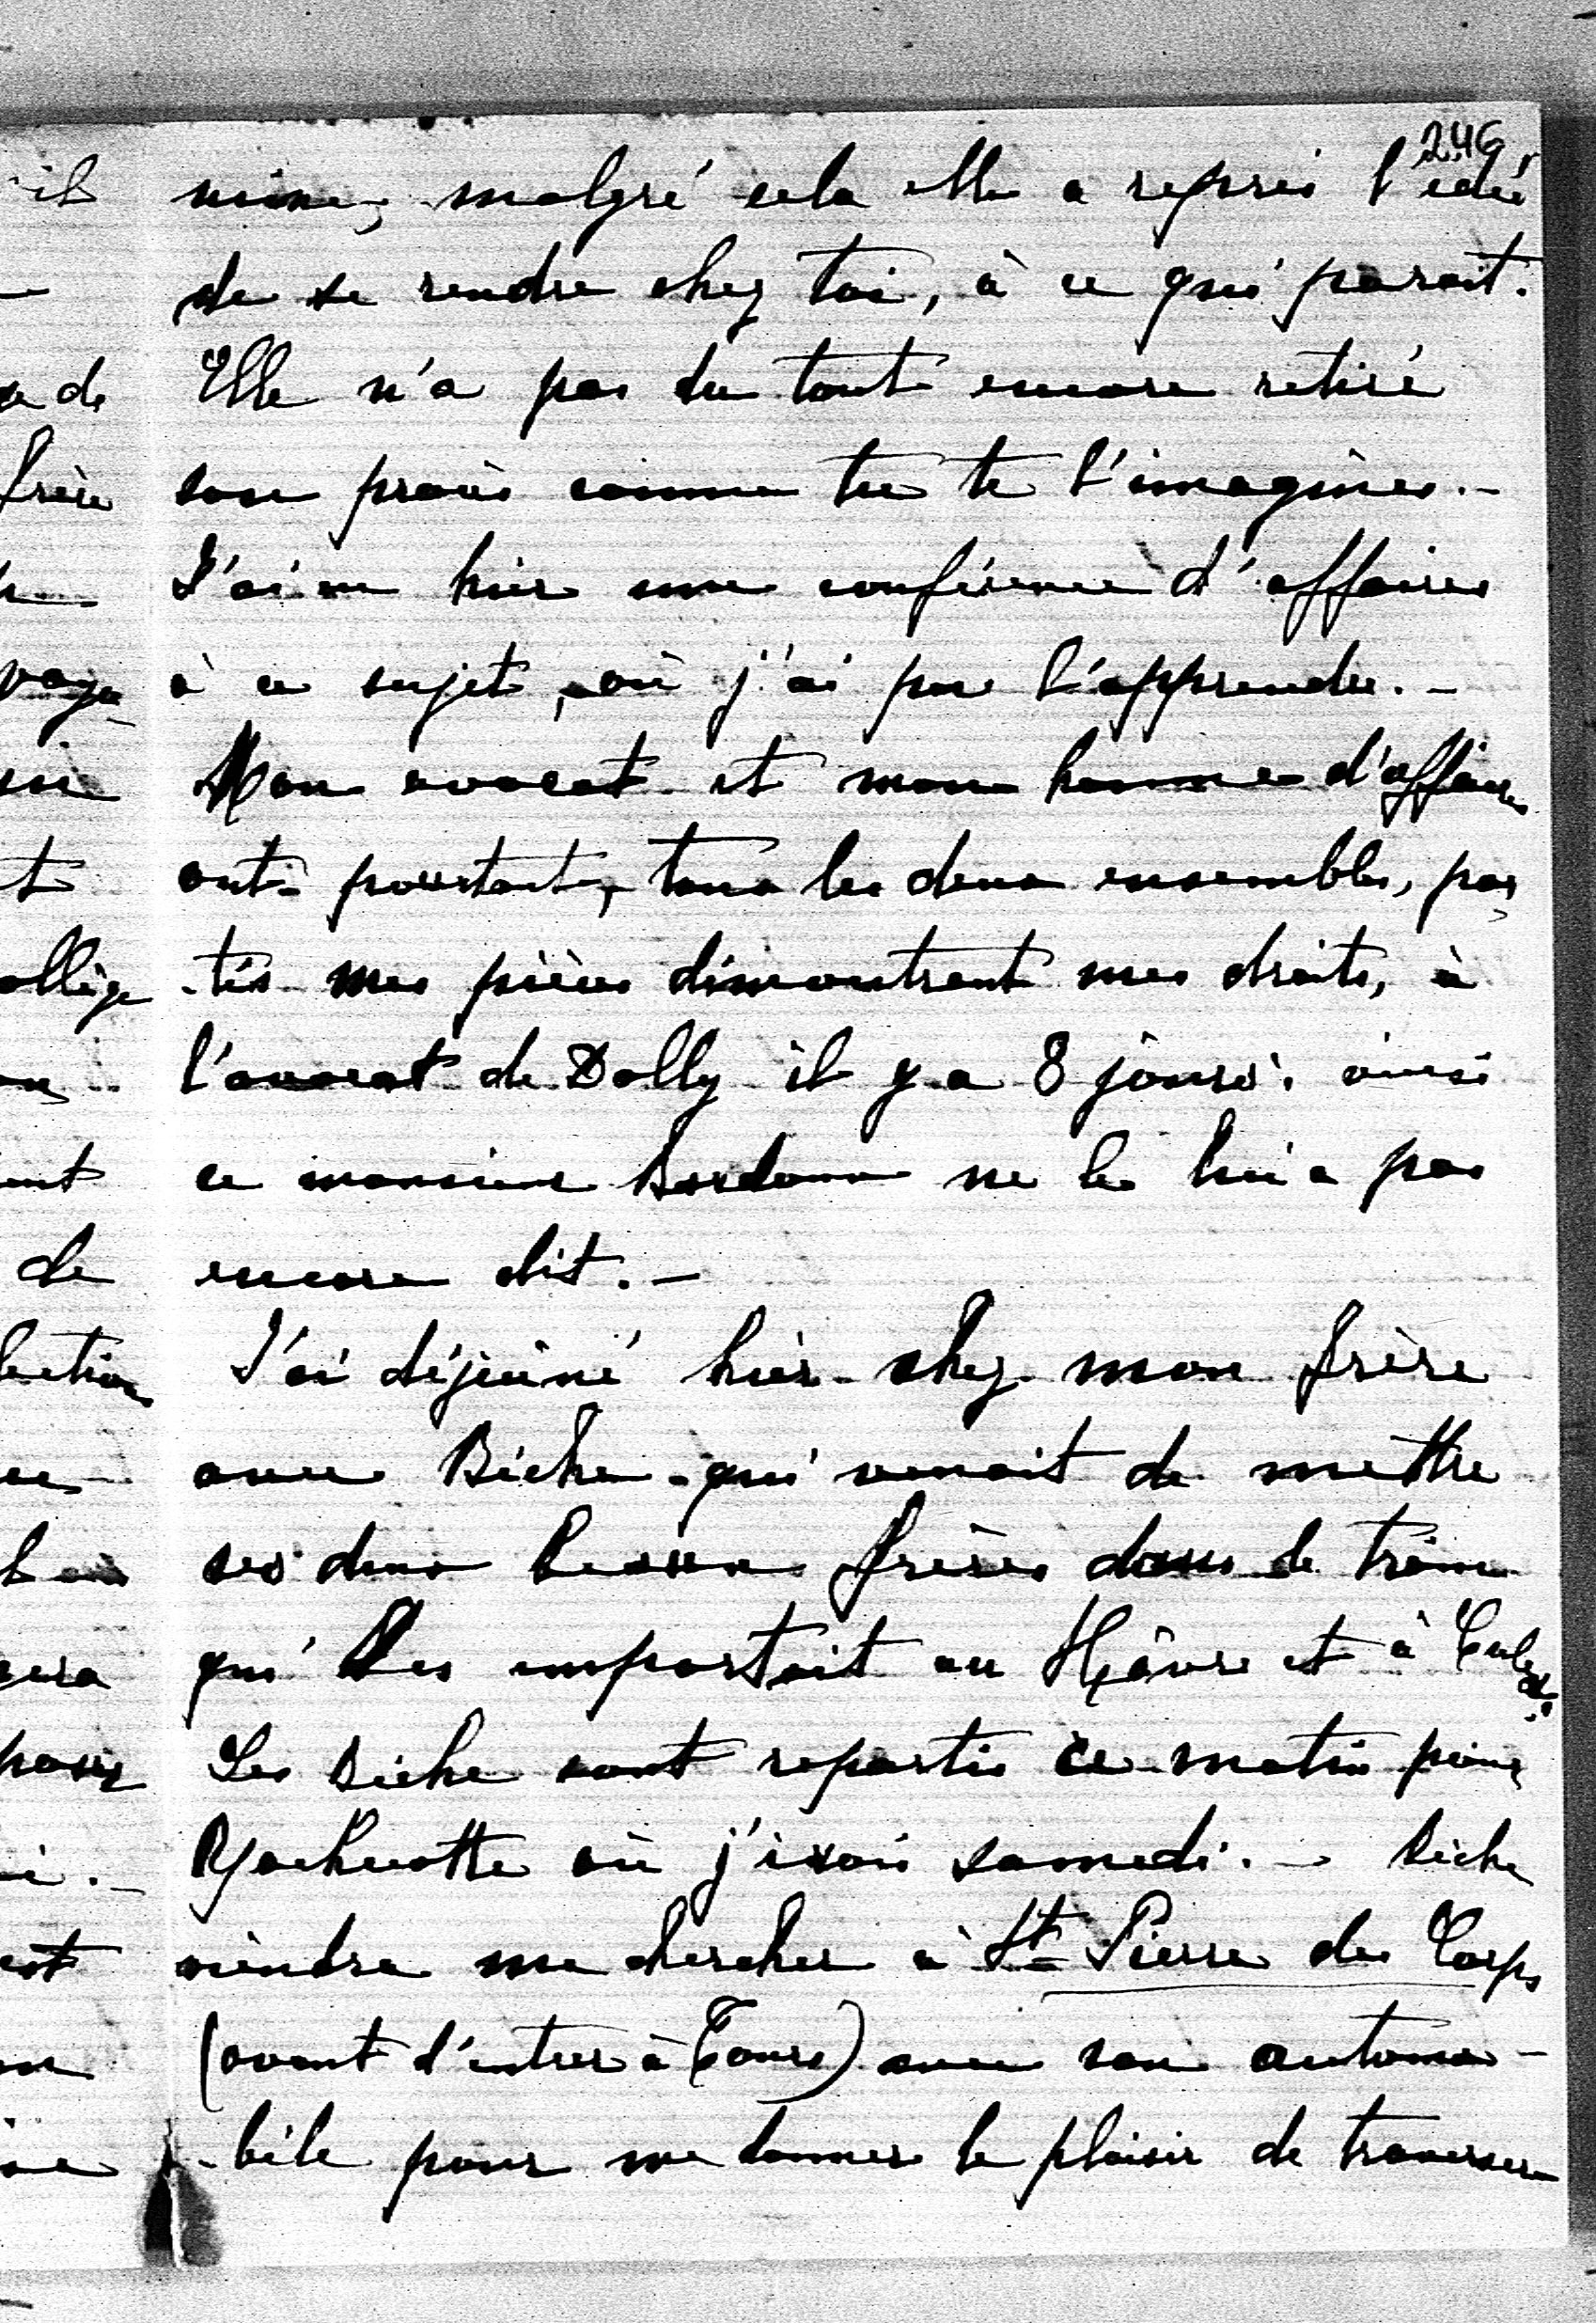 246
mine, malgré cela elle a repris l'idée
de se rendre chez toi, à ce qui parait.
Elle n'a pas du tout encore retiré
son procès comme tu te l'imagines. -
J'ai eu hier une conférence d'affaires
à ce sujet, où j'ai pu l'apprendre. -
Mon avocat et mon homme d'affaires
ont pourtant, tous les deux ensembles, por
-tés mes pièces démontrant mes droits, à
l'avocat de Dolly il y a 8 jours, ainsi
ce monsieur ne le lui a pas
encore dit. -
J'ai déjeuné hier chez mon frère
avec Biche qui venait de mettre
ses deux beaux frères dans le train
qui les emportait au Hâvre et à
Les Biche sont repartis ce matin pour
où j'irai samedi. - Biche
viendra me chercher à St Pierre des Corps
(avant d'entrer à Tours) avec son automo-
-bile pour me donner le plaisir de traverser